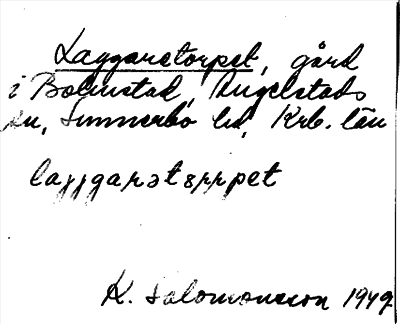 Laggaretorpet, gård
i Bolmstad, Angelstads
sn, Sunnerbo hd, Krb. län
laggarətørpet
K. Salomonsson 1949